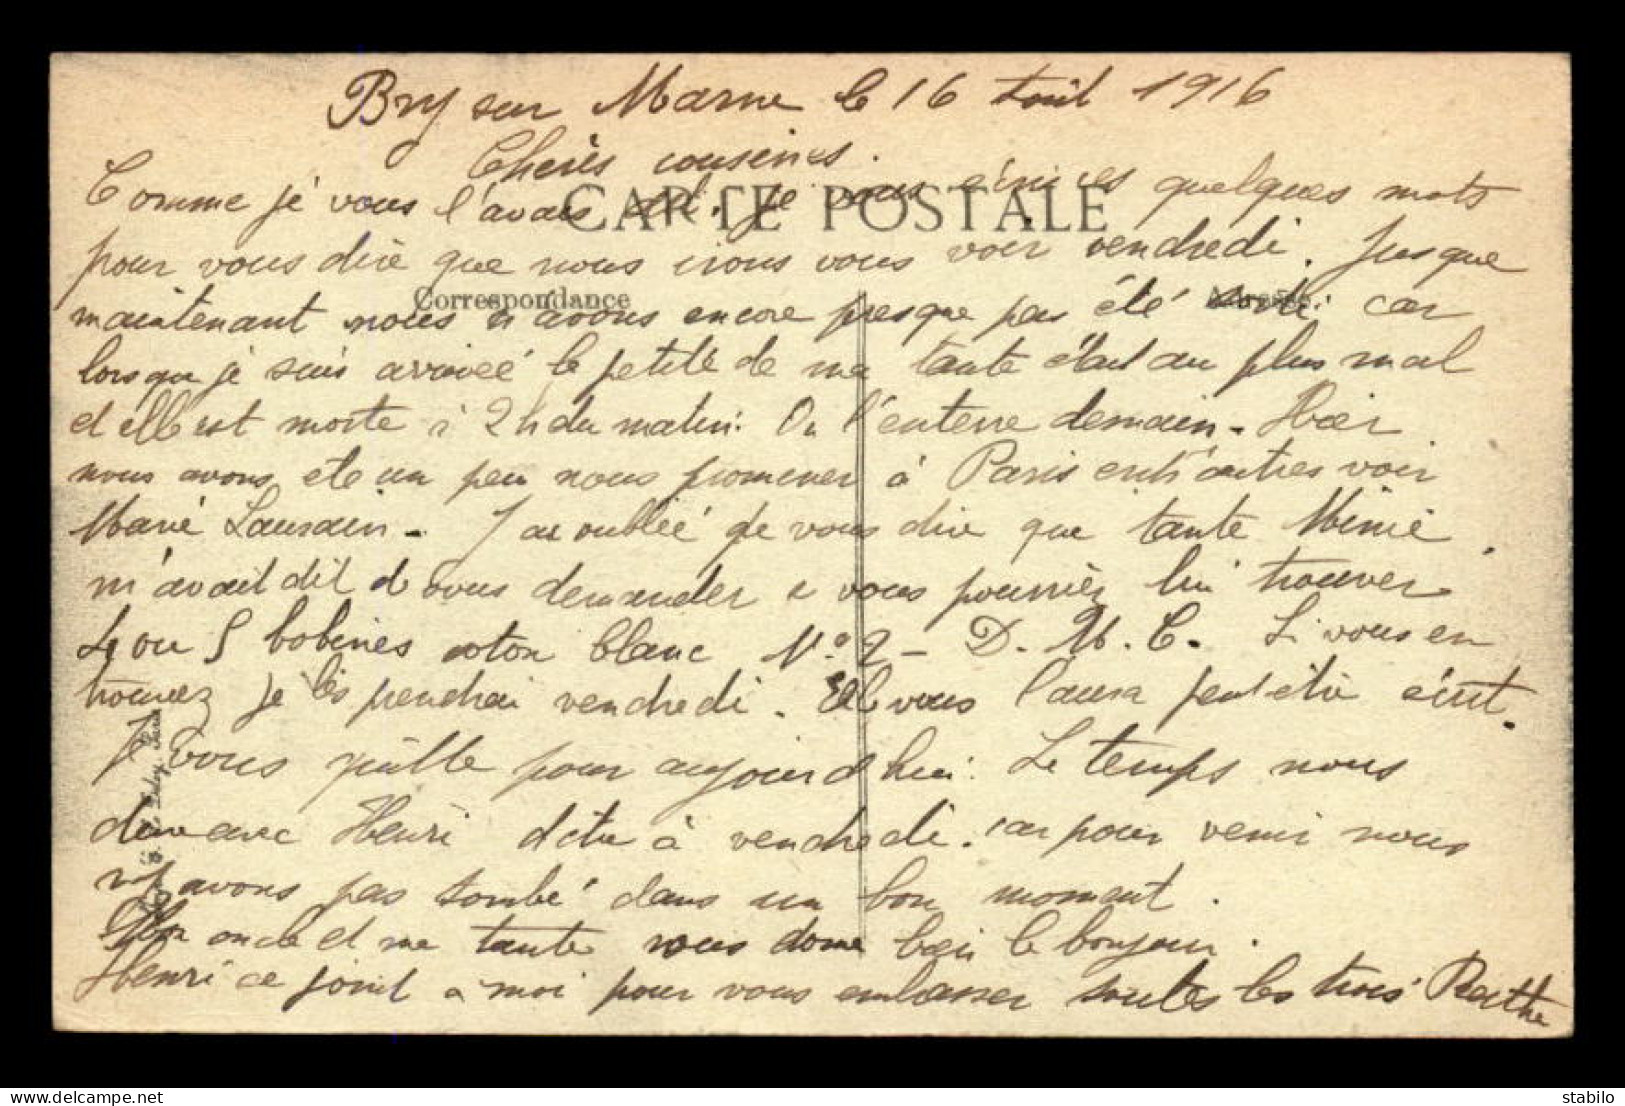 Bry sur Marne le 16 Août 1916
Cheres cousines.
CARTE POSTALE
Comme je vous l'avais dit. Je vous écris ces quelques mots
pour vous dire que nous irons vous voir vendredi. Jusque
Correspondance
maintenant nous n'avons encore presque pas été sorti car
lorsque je suis arrivée la petite de ma tante était au plus mal
et elle est morte à 2 h du matin. On l'enterre demain - Hier
nous avons été un peu nous promener à Paris entr'autres voir
Marie Laurain - J'ai oublié de vous dire que tante Mimie
m'avait dit de vous demander si vous pourriez lui trouver
4 ou 5 bobines coton blanc No 2 - D. M. C. Si vous en
trouvez je les prendrai vendredi. Elle vous l'aura peut être écrit.
Je vous quitte pour aujourd hui. Le temps nous
dure avec Henri d'être à vendredi. car pour venir nous
n'avons pas tombé dans un bon moment.
Mon oncle et ma tante vous donne bien le bonjour.
Henri ce joint à moi pour vous embrasser toutes les trois Berthe
delcampe.net
satabilo